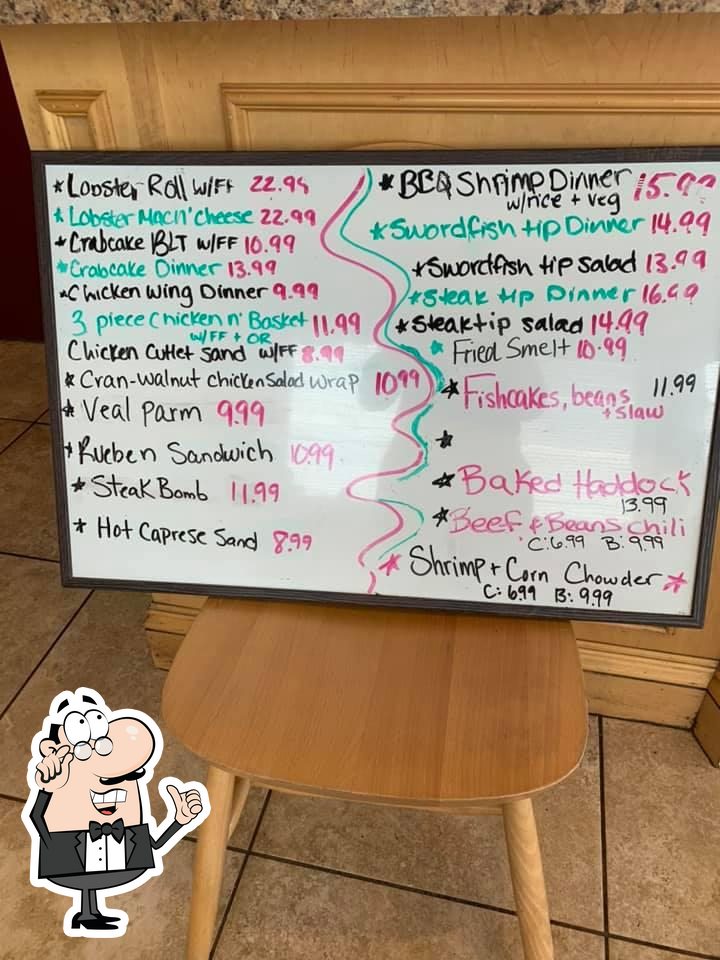 * Lobster Roll w/FF 22.99
* Lobster Mac n' Cheese 22.99
* Crabcake BLT w/FF 10.99
* Crabcake Dinner 13.99
* Chicken Wing Dinner 9.99
3 piece Chicken n' Basket 11.99
w/FF + OR
Chicken Cutlet Sand w/FF 8.99
* Cran-Walnut Chicken Salad Wrap 10.99
* Veal Parm 9.99
* Rueben Sandwich 10.99
* Steak Bomb 11.99
* Hot Caprese Sand 8.99
* BBQ Shrimp Dinner 15.99
w/rice + veg
* Swordfish tip Dinner 14.99
* Swordfish tip Salad 13.99
* Steak tip Dinner 16.99
* Steak tip Salad 14.99
* Fried Smelt 10.99
* Fishcakes, beans 11.99
+ slaw
*
* Baked Haddock
13.99
* Beef & Beans Chili
C: 6.99 B: 9.99
* Shrimp + Corn Chowder *
C: 6.99 B: 9.99